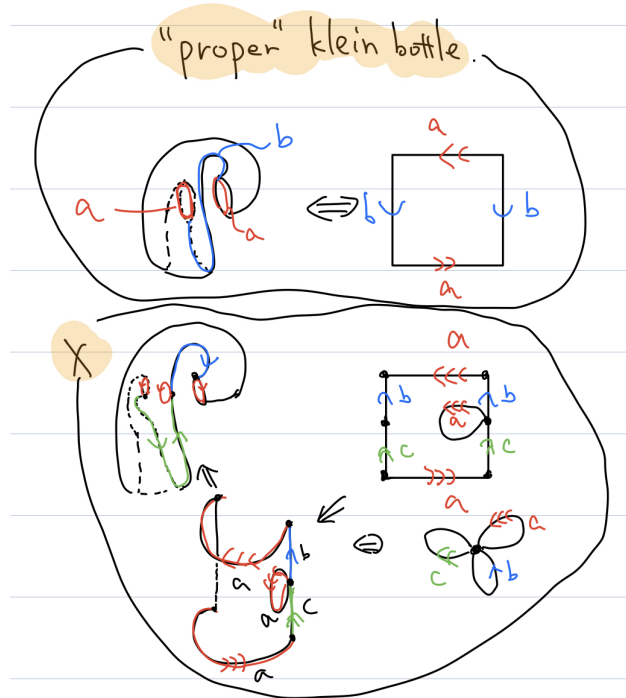 "proper" klein bottle.
b
a
a
a
b
b
a
X
a
b
b
a
c
c
a
b
a
a
c
a
a
c
b